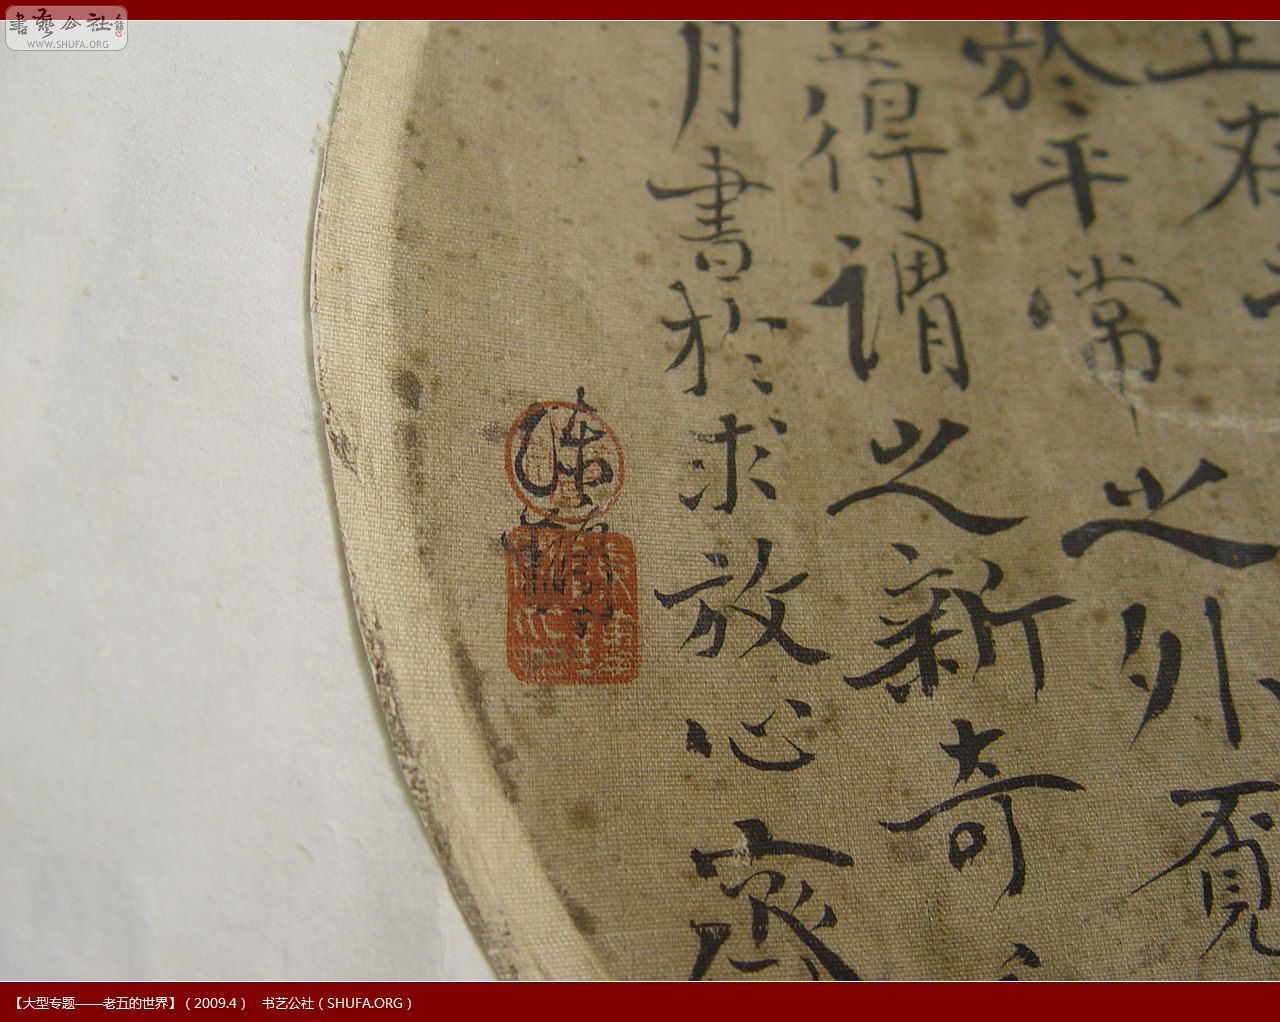 書藝公社
WWW.SHUFA.ORG
正在
於平常之外覔
豈得謂之新奇
月書於求放心齋
【大型专题——老五的世界】（2009.4） 书艺公社（SHUFA.ORG）